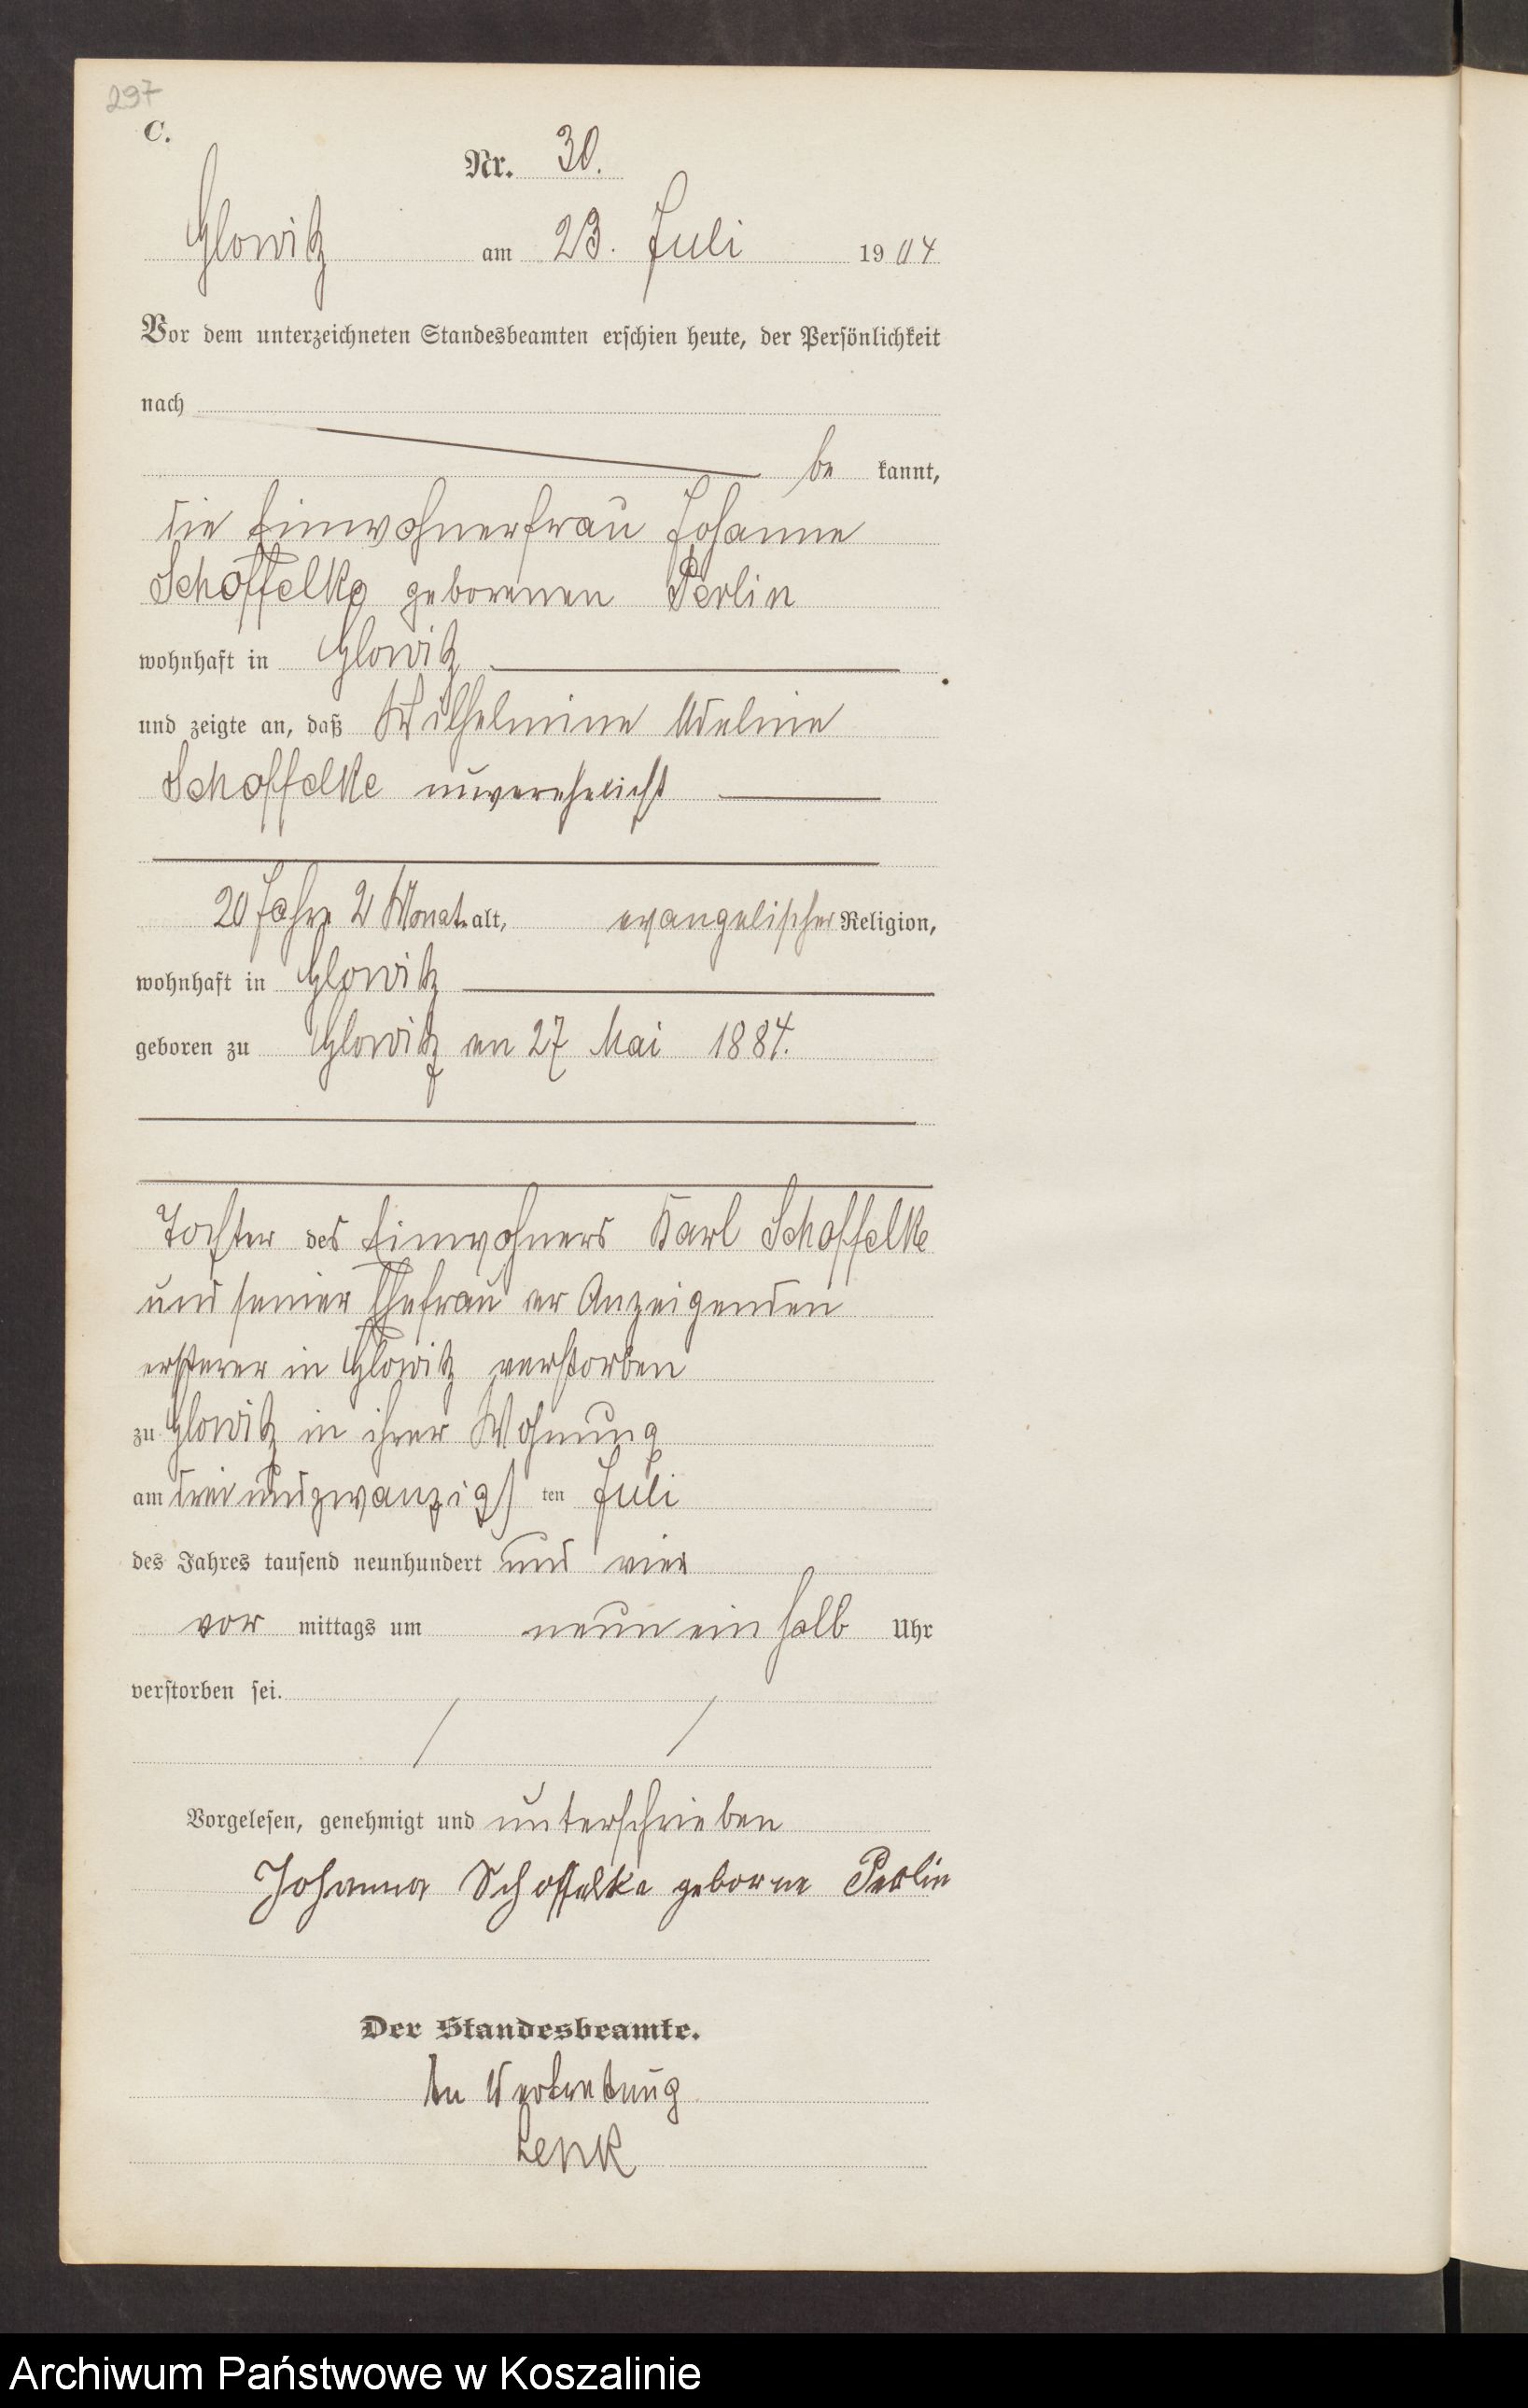 297
C.
Nr. 30.
Glowitz am 23. Juli 1904
Vor dem unterzeichneten Standesbeamten erschien heute, der Persönlichkeit
nach
be kannt,
die Einwohnerfrau Johanne
Schoffelke geborenen Perlin
wohnhaft in Glowitz
und zeigte an, daß Wilhelmine Adeline
Schoffelke unverehelicht
20 Jahre 2 Monat alt, evangelischer Religion,
wohnhaft in Glowitz
geboren zu Glowitz am 27 Mai 1884.
Tochter des Einwohners Karl Schoffelke
und seiner Ehefrau der Anzeigenden
ersterer in Glowitz verstorben
zu Glowitz in ihrer Wohnung
am dreiundzwanzigsten Juli
des Jahres tausend neunhundert und vier
vor mittags um neun ein halb Uhr
verstorben sei.
Vorgelesen, genehmigt und unterschrieben
Johanna Schoffelke geborne Perlin
Der Standesbeamte.
In Vertretung
Lenk
Archiwum Państwowe w Koszalinie